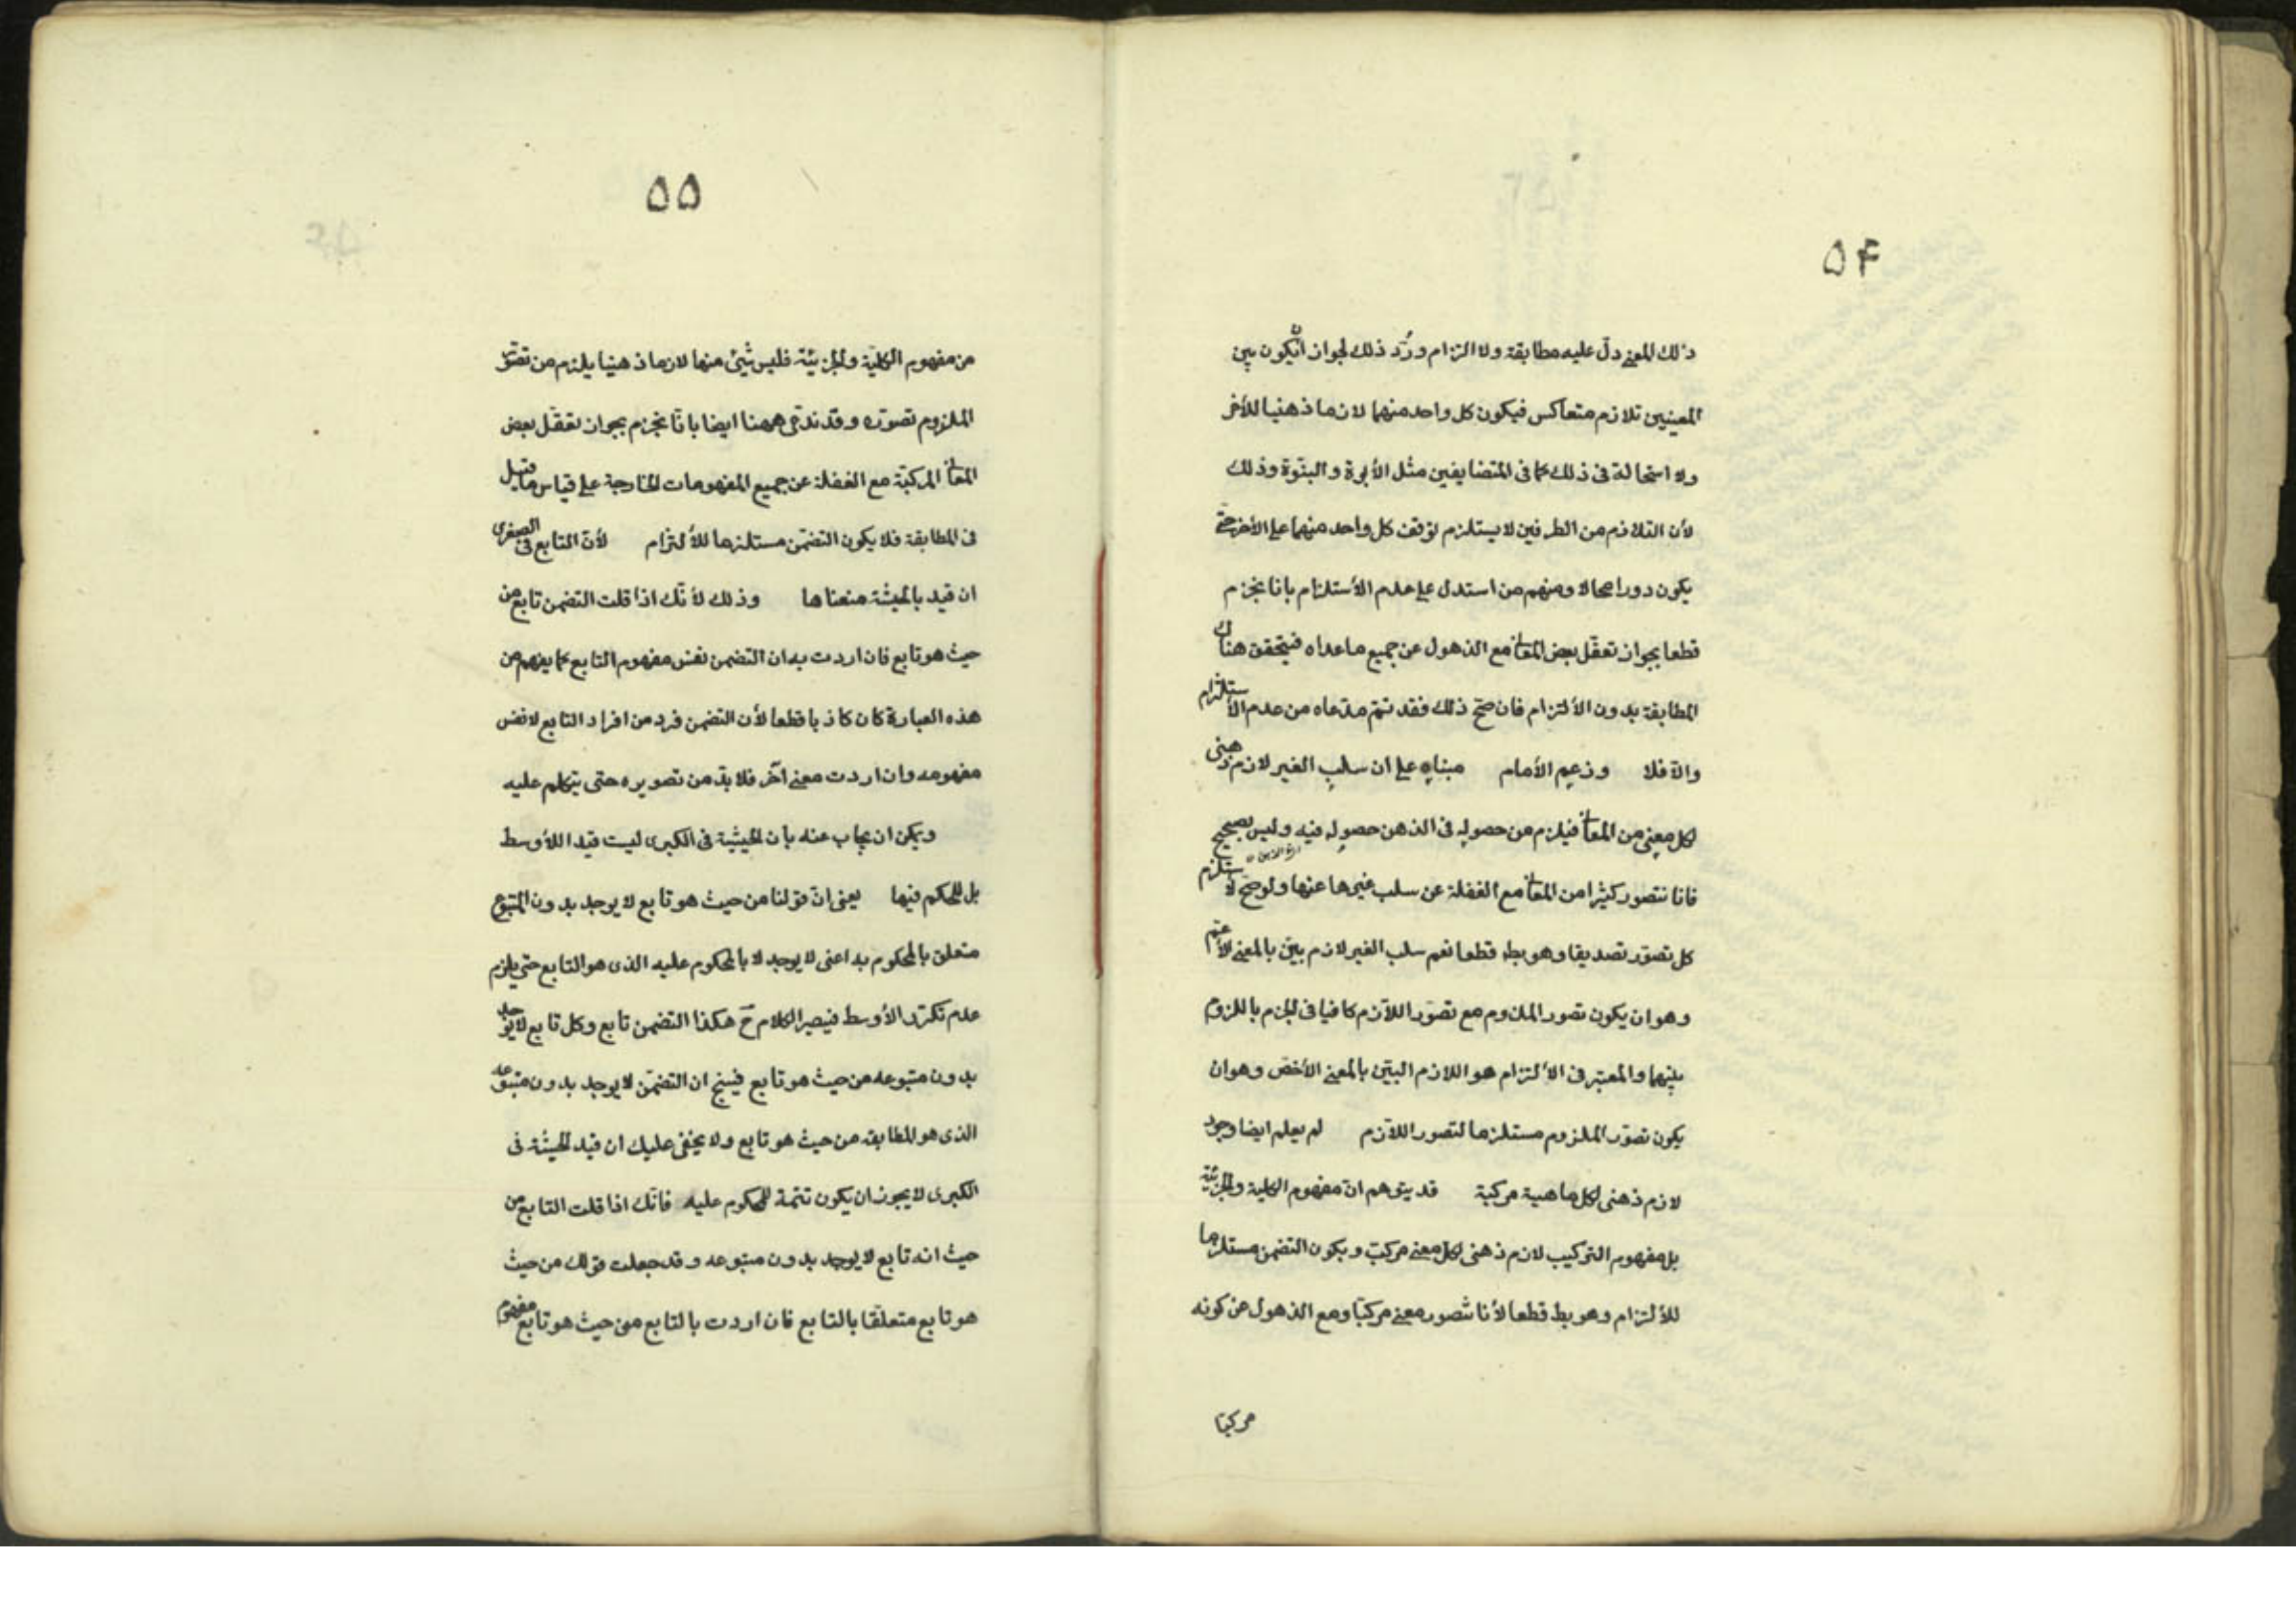 ٥۴
ذلك المعنى دلّ عليه مطابقة ولا التزام ورُدّ ذلك لجواز ان يكون بين
المعنيين تلازم متعاكس فيكون كل واحد منهما لازما ذهنيا للأخر
ولا استحالة فى ذلك كما فى المتضايفين مثل الأبوة والبنوّة وذلك
لأن التلازم من الطرفين لا يستلزم توقف كل واحد منهما على الأخر حتى
يكون دورا محالا ومنهم من استدل على عدم الأستلزام بانا نجزم
قطعا بجواز تعقّل بعض المعانى مع الذهول عن جميع ماعداه فيتحقق هناك
المطابقة بدون الألتزام فان صحّ ذلك فقد تمّ مدّعاه من عدم الأستلزام
والّا فلا وزعم الأمام مبناه على ان سلب الغير لازم ذهنى
لكل معنى من المعانى فيلزم من حصوله فى الذهن حصوله فيه وليس بصحيح
فانا نتصور كثيرا من المعانى مع الغفلة عن سلب غيرها عنها ولو صحّ لأستلزم
كل تصوّر تصديقا وهو بط قطعا نعم سلب الغير لازم بيّن بالمعنى الأعمّ
وهو ان يكون تصور الملزوم مع تصوّر اللّازم كافيا فى الجزم باللزوم
بينهما والمعتبر فى الألتزام هو اللازم البيّن بالمعنى الأخصّ وهو ان
يكون تصوّر الملزوم مستلزما لتصور اللّازم لم يعلم ايضا وجود
لازم ذهنى لكل ماهية مركبة قد يتوهم انّ مفهوم الكلية والجزئيّة
بل مفهوم التركيب لازم ذهنى لكل معنى مركّب ويكون التضمن مستلزما
للألتزام وهو بط قطعا لأنا نتصور معنى مركبّا ومع الذهول عن كونه
مركبا
٥٥
من مفهوم الكليّة والجزئيّة فليس شيئ منها لازما ذهنيا يلزم من تصوّر
الملزوم تصوّره وقد ندّعى ههنا ايضا بانّا نجزم بجواز تعقّل بعض
المعانى المركبّة مع الغفلة عن جميع المفهومات الخارجة على قياس ما قيل
فى المطابقة فلا يكون التضمّن مستلزما للألتزام لأنّ التابع فى الصغرى
ان قيد بالحيثة منعناها وذلك لأنّك اذا قلت التضمن تابع من
حيث هو تابع فان اردت به ان التضمن نفس مفهوم التابع كما يفهم من
هذه العبارة كان كاذبا قطعا لأن التضمن فرد من افراد التابع لا نفس
مفهومه وان اردت معنى آخر فلا بدّ من تصويره حتى يتكلم عليه
ويمكن ان يجاب عنه بأن الحيثية فى الكبرى ليست قيدا للأوسط
بل للحكم فيها يعنى انّ قولنا من حيث هو تابع لا يوجد بدون المتبوع
متعلق بالمحكوم به اعنى لا يوجد لا بالمحكوم عليه الذى هو التابع حتى يلزم
عدم تكرّر الأوسط فيصير الكلام حَ هكذا التضمن تابع وكل تابع لا يوجد
بدون متبوعه من حيث هو تابع فينتج ان التضمّن لا يوجد بدون متبوعه
الذى هو المطابقة من حيث هو تابع ولا يخفى عليك ان قيد الحيثة فى
الكبرى لا يجوز ان يكون تتمة للمحكوم عليه فانّك اذا قلت التابع من
حيث انه تابع لا يوجد بدون متبوعه وقد جعلت قولك من حيث
هو تابع متعلّقا بالتابع فان اردت بالتابع من حيث هو تابع مفهوم